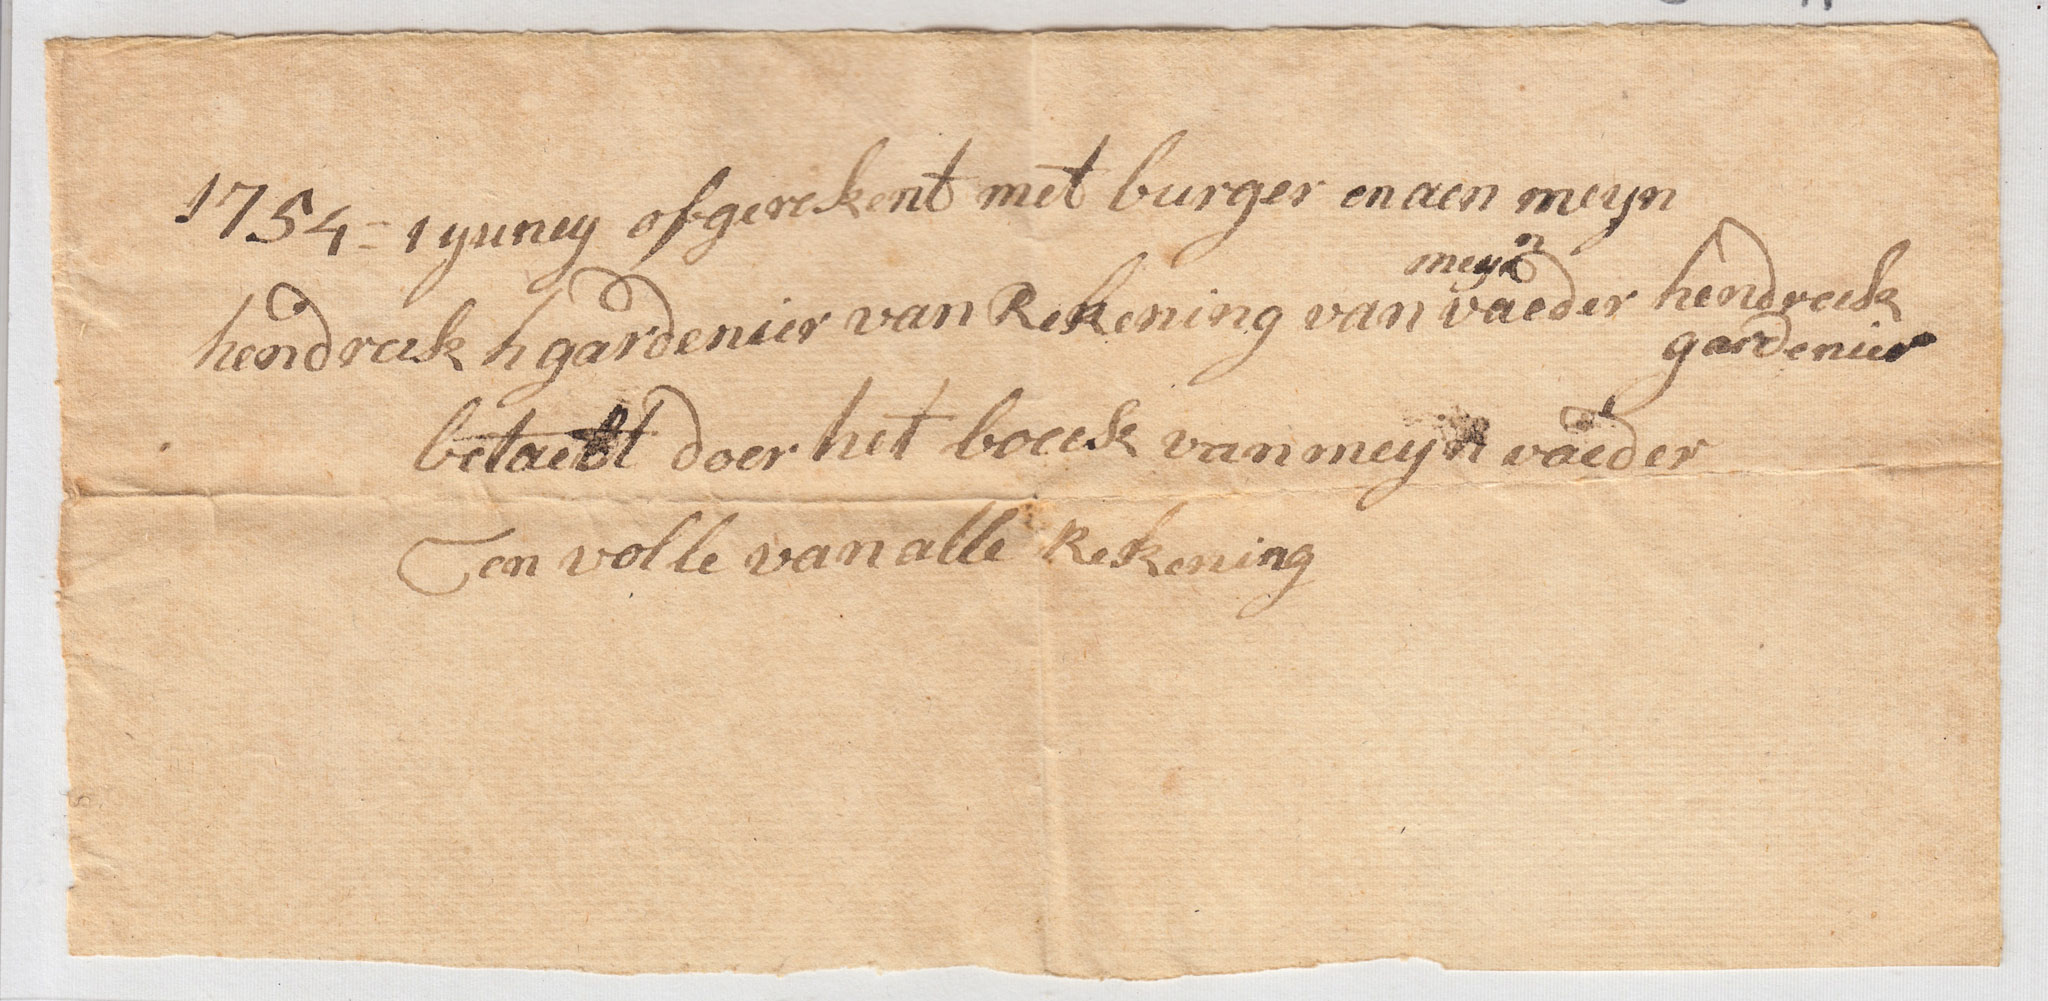 1754 = 1 yuney ofgerekent met burger en aen meyn
hendreck h gardenier van Rekening van meyn vaeder hendreck
gardenier
betaelt doer het boeck van meyn vaeder
Ten volle van alle Rekening